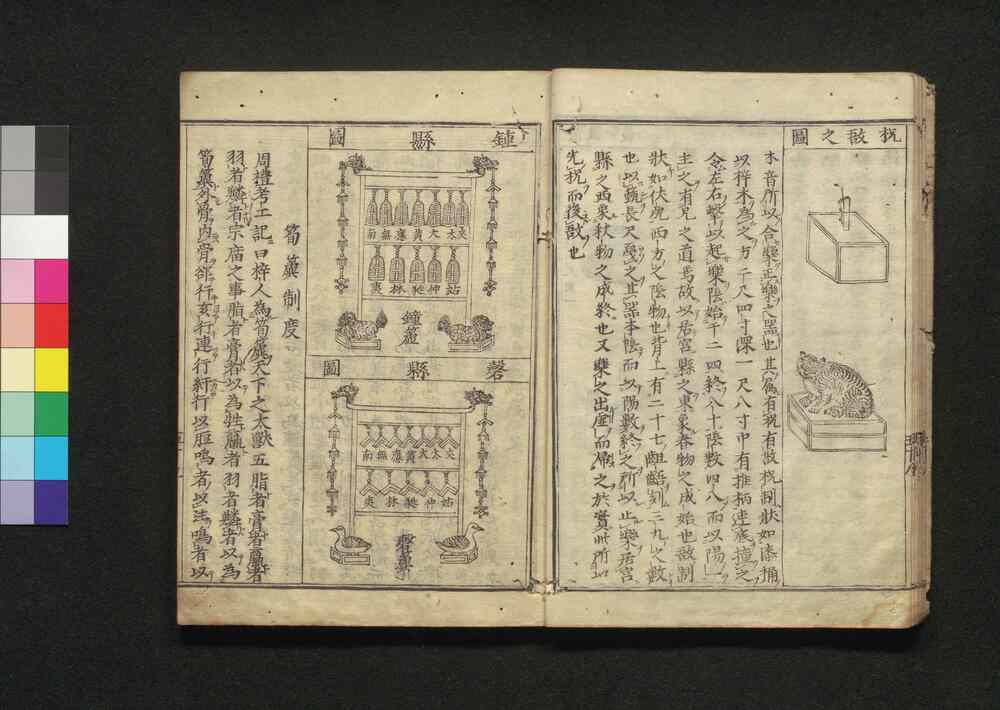 柷敔之圖
木音所以合樂正樂之器也其為有柷有敔柷制狀如漆桶
以梓木為之方二尺四寸深一尺八寸中有推柄連底撞之
令左右擊以起樂陰始于二四終八十陰數四八而以陽一
主之有兄之道焉故以居宮縣之東象春物之成始也敔制
狀如伏虎西方之陰物也背上有二十七齟齬刻三九之數
也以籈長尺戛之其器本陰而以陽數終之所以止樂居宮
縣之西象秋物之成終也又樂之出虛而歸之於實此所以
先柷而後敔也
鍾縣圖
夾太大黃應無南
姑仲蕤林夷
鐘簴
磬縣圖
夾太大黃應無南
姑仲蕤林夷
磬簴
筍簴制度
周禮考工記曰梓人為筍簴天下之大獸五脂者膏者臝者
羽者鱗者宗庙之事脂者膏者以為牲臝者羽者鱗者以為
筍簴外骨內骨郤行仄行連行紆行以脰鳴者以注鳴者以